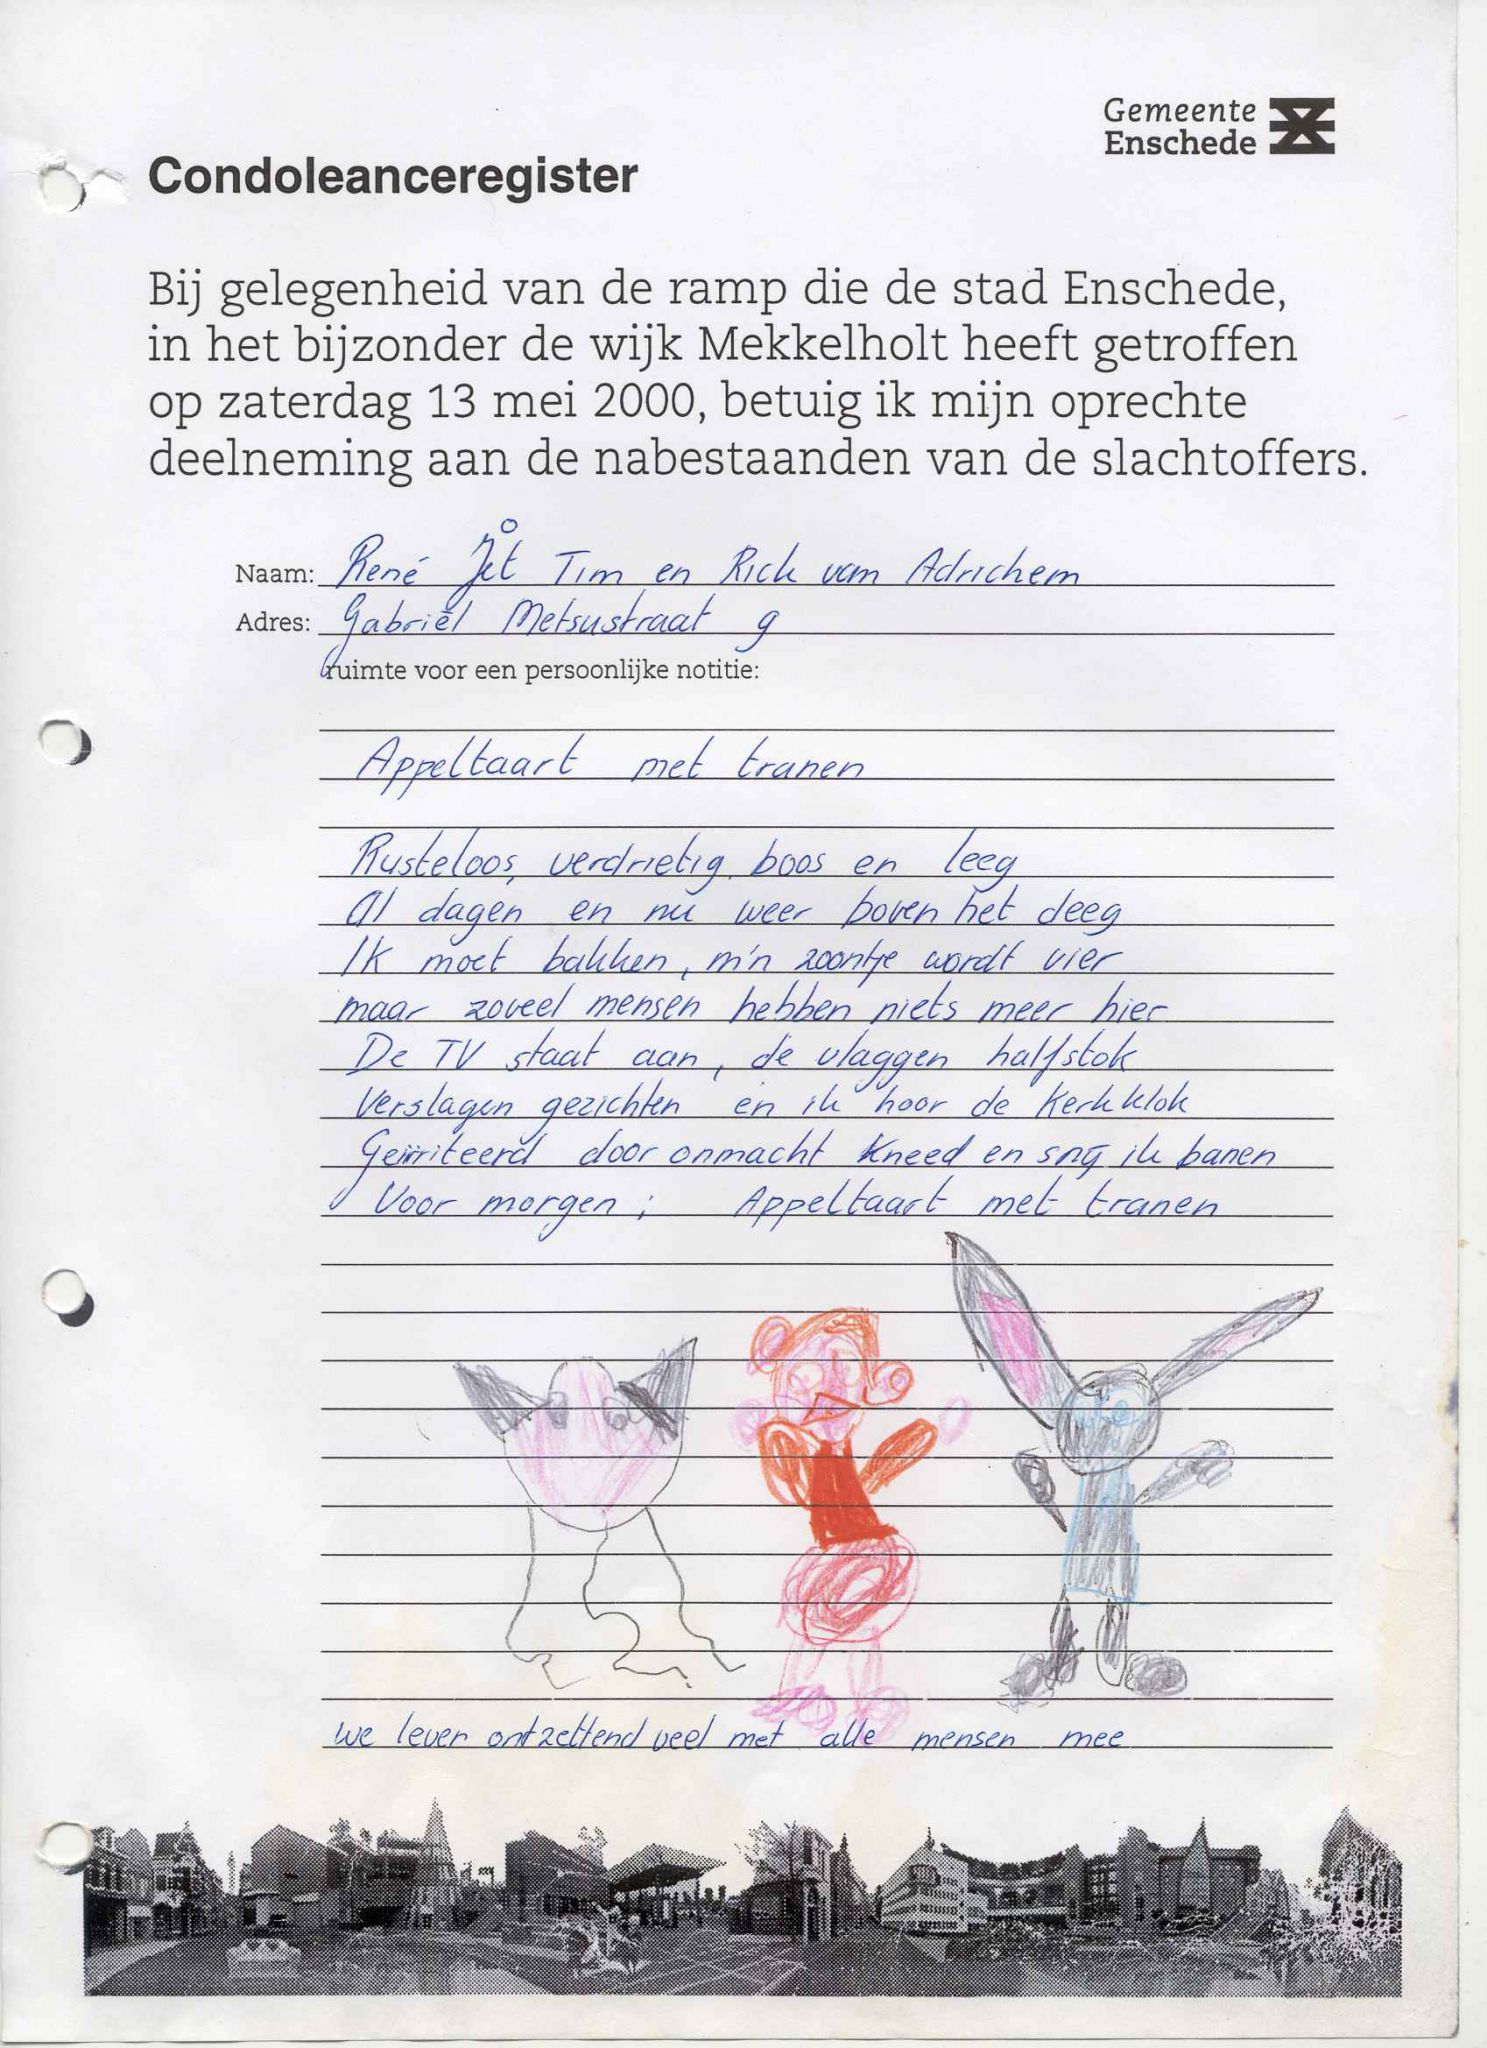 Gemeente
Enschede
Condoleanceregister
Bij gelegenheid van de ramp die de stad Enschede,
in het bijzonder de wijk Mekkelholt heeft getroffen
op zaterdag 13 mei 2000, betuig ik mijn oprechte
deelneming aan de nabestaanden van de slachtoffers.
Naam: René Jet Tim en Rick van Adrichem
Adres: Gabriël Metsustraat 9
ruimte voor een persoonlijke notitie:
Appeltaart met tranen
Rusteloos, verdrietig, boos en leeg
Al dagen en nu weer boven het deeg
Ik moet bakken, m'n zoontje wordt vier
maar zoveel mensen hebben niets meer hier
De TV staat aan, de vlaggen halfstok
Verslagen gezichten en ik hoor de kerkklok
Geïrriteerd door onmacht kneed en snij ik banen
Voor morgen; Appeltaart met tranen
we leven ontzettend veel met alle mensen mee